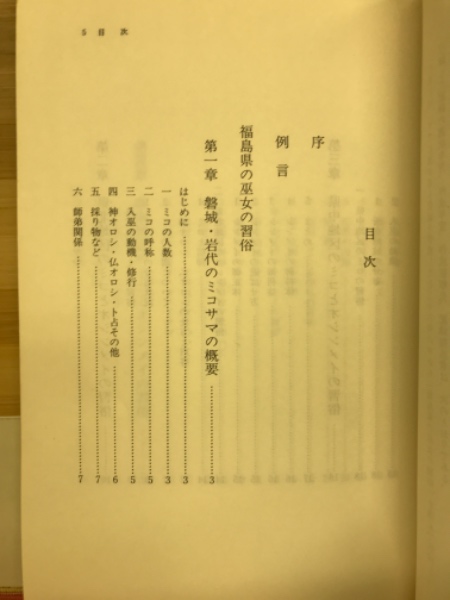 5 目 次
目 次
序
例 言
福島県の巫女の習俗
第一章 磐城・岩代のミコサマの概要……3
はじめに……3
一 ミコの人数……3
二 ミコの呼称……5
三 入巫の動機・修行……5
四 神オロシ・仏オロシ・卜占その他……6
五 採り物など……7
六 師弟関係……7